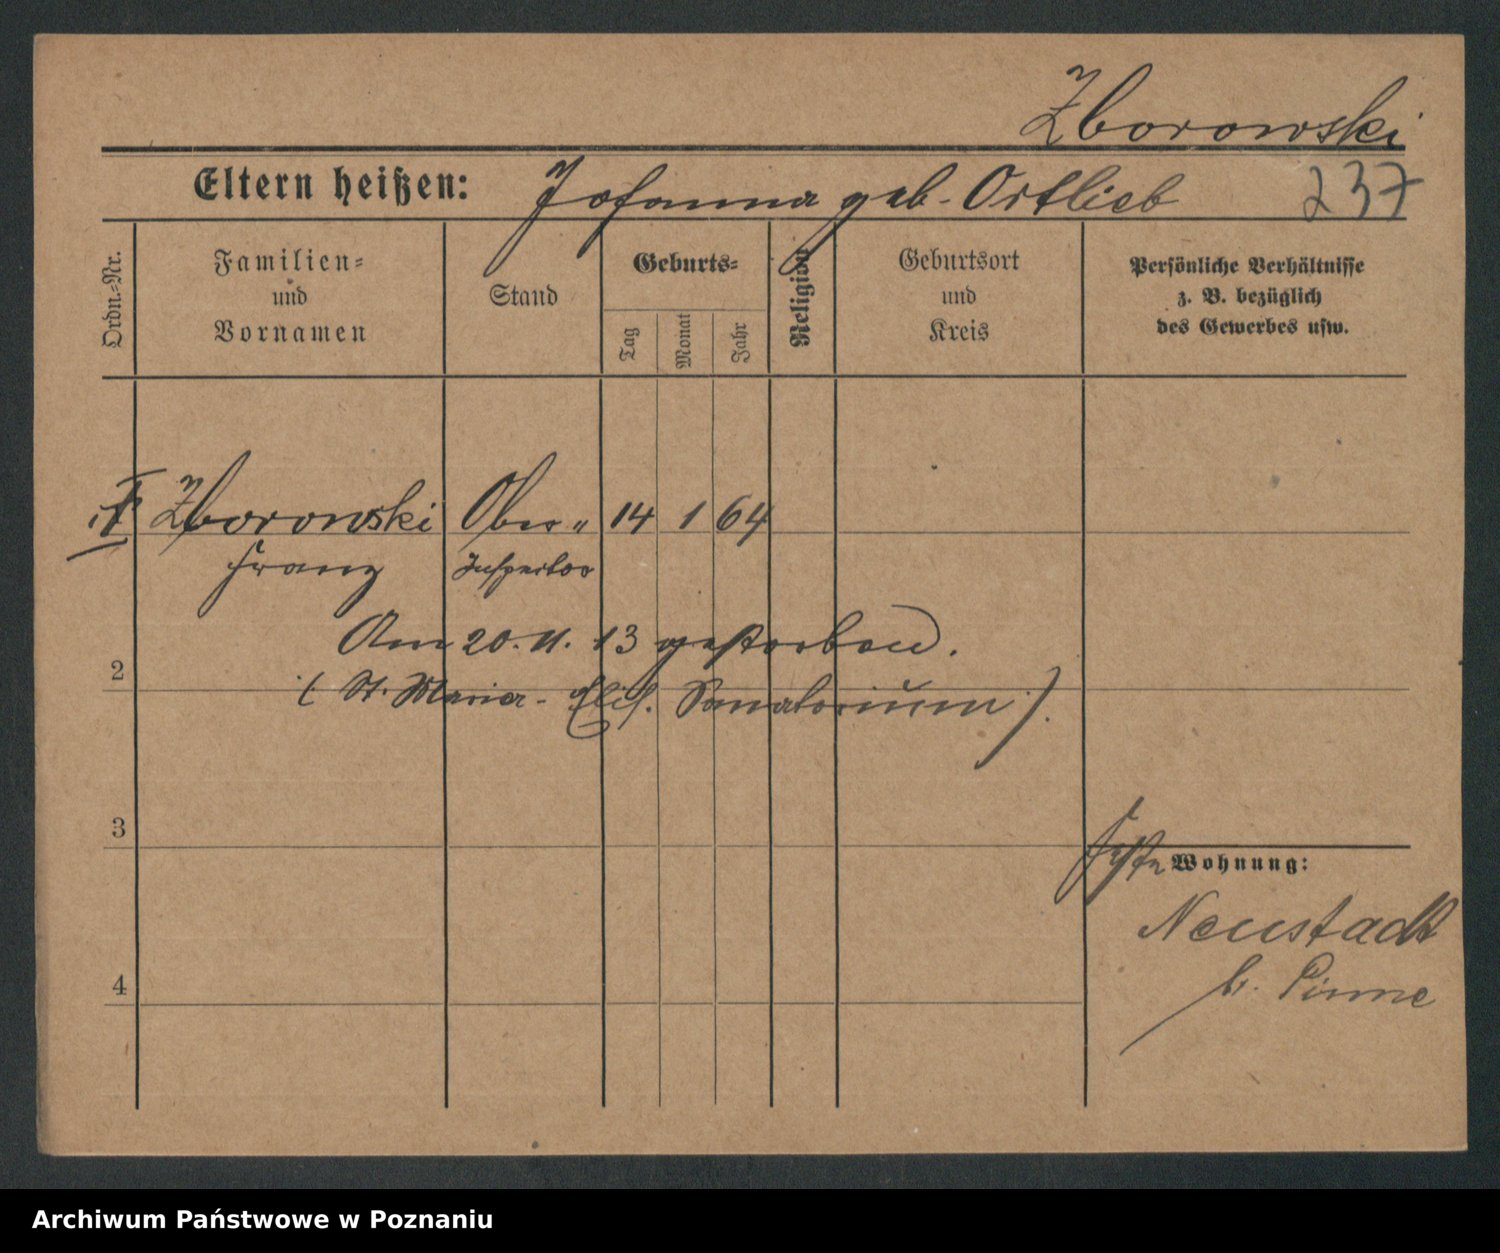 Zborowski
Eltern heißen: Johanna geb. Ortlieb 237
Ordn.=Nr.
Familien=
und
Vornamen
Stand
Geburts=
Tag
Monat
Jahr
Religion
Geburtsort
und
Kreis
Persönliche Verhältnisse
z. B. bezüglich
des Gewerbes usw.
Zborowski Ober„ 14 1 64
Franz Inspector
Am 20. 11. 13 gestorben.
2
(St. Maria - Elis. Sanatorium).
3
Wohnung:
Neustadt
b. Pinne
4
Archiwum Państwowe w Poznaniu